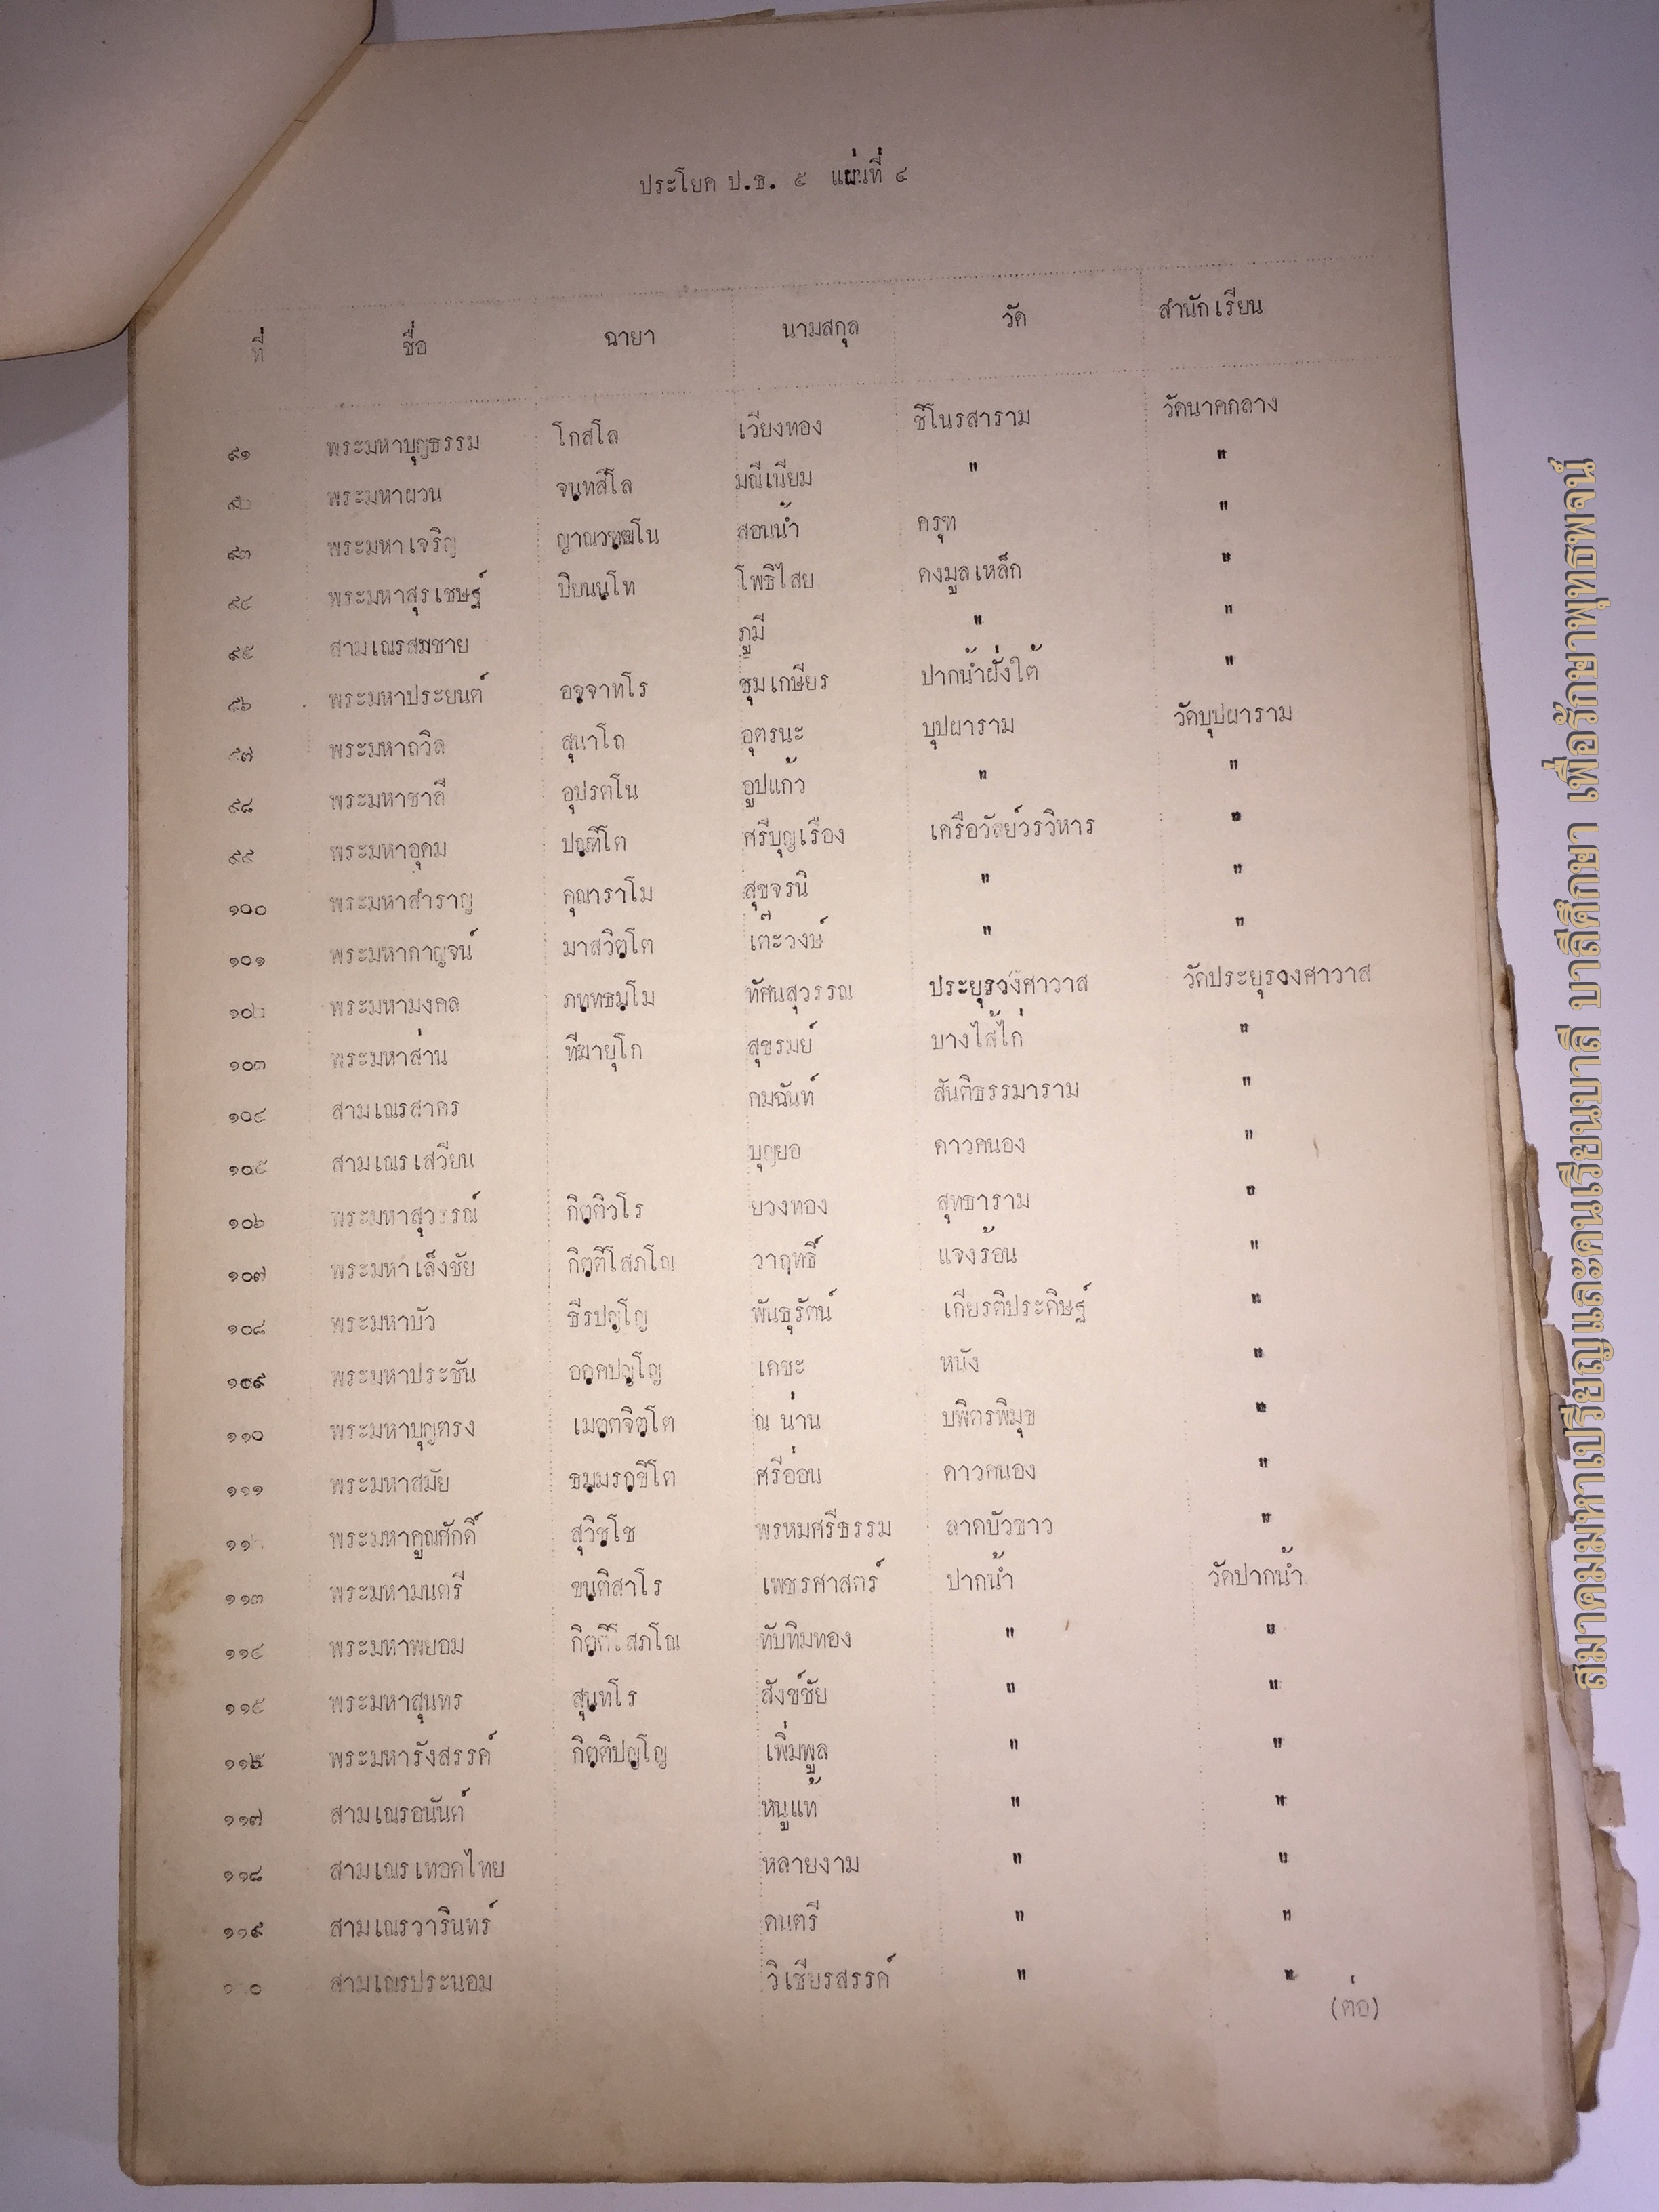 ประโยค ป.ธ. ๕ แผ่นที่ ๔
ที่ ชื่อ ฉายา นามสกุล วัด สำนักเรียน
๙๑ พระมหาบุญธรรม โกสโล เวียงทอง ชิโนรสาราม วัดนาคกลาง
๙๒ พระมหาผวน จนฺทสีโล มณีเนียม " "
๙๓ พระมหาเจริญ ญาณวฑฺฒโน สอนน้ำ ครุฑ "
๙๔ พระมหาสุรเชษฐ์ ปิยนนฺโท โพธิไสย ดงมูลเหล็ก "
๙๕ สามเณรสมชาย ภูมี " "
๙๖ พระมหาประยนต์ อจฺจาทโร ชุมเกษียร ปากน้ำฝั่งใต้ "
๙๗ พระมหาถวิล สุนาโถ อุตรนะ บุปผาราม วัดบุปผาราม
๙๘ พระมหาชาลี อุปรตโน อูปแก้ว " "
๙๙ พระมหาอุดม ปณฺฑิโต ศรีบุญเรือง เครือวัลย์วรวิหาร "
๑๐๐ พระมหาสำราญ คุณาราโม สุขจรนิ " "
๑๐๑ พระมหากาญจน์ มาสวิตฺโต เต๊ะวงษ์ " "
๑๐๒ พระมหามงคล ภทฺทธมฺโม ทัศนสุวรรณ ประยุรวงศาวาส วัดประยุรวงศาวาส
๑๐๓ พระมหาส่าน ทีฆายุโก สุขรมย์ บางไส้ไก่ "
๑๐๔ สามเณรสาคร กมฉันท์ สันติธรรมาราม "
๑๐๕ สามเณรเสวียน บุญยอ ดาวคนอง "
๑๐๖ พระมหาสุวรรณ์ กิตฺติวโร ยวงทอง สุทธาราม "
๑๐๗ พระมหาเล็งชัย กิตฺติโสภโณ วาฤทธิ์ แจงร้อน "
๑๐๘ พระมหาบัว ธีรปญฺโญ พันธุรัตน์ เกียรติประดิษฐ์ "
๑๐๙ พระมหาประชัน อคฺคปญฺโญ เดชะ หนัง "
๑๑๐ พระมหาบุญตรง เมตฺตจิตฺโต ณ น่าน บพิตรพิมุข "
๑๑๑ พระมหาสมัย ธมฺมรกฺขิโต ศรีอ่อน ดาวคนอง "
๑๑๒ พระมหาคูณศักดิ์ สุวิชฺโช พรหมศรีธรรม ลาดบัวขาว "
๑๑๓ พระมหามนตรี ขนฺติสาโร เพชรศาสตร์ ปากน้ำ วัดปากน้ำ
๑๑๔ พระมหาพยอม กิตฺติโสภโณ ทับทิมทอง " "
๑๑๕ พระมหาสุนทร สุนฺทโร สังข์ชัย " "
๑๑๖ พระมหารังสรรค์ กิตฺติปญฺโญ เพิ่มพูล " "
๑๑๗ สามเณรอนันต์ หนูแท้ " "
๑๑๘ สามเณรเทอดไทย หลายงาม " "
๑๑๙ สามเณรวารินทร์ ดนตรี " "
๑๒๐ สามเณรประนอม วิเชียรสรรค์ " "
(ต่อ)
สมาคมมหาเปรียญและคนเรียนบาลี บาลีศึกษา เพื่อรักษาพุทธพจน์